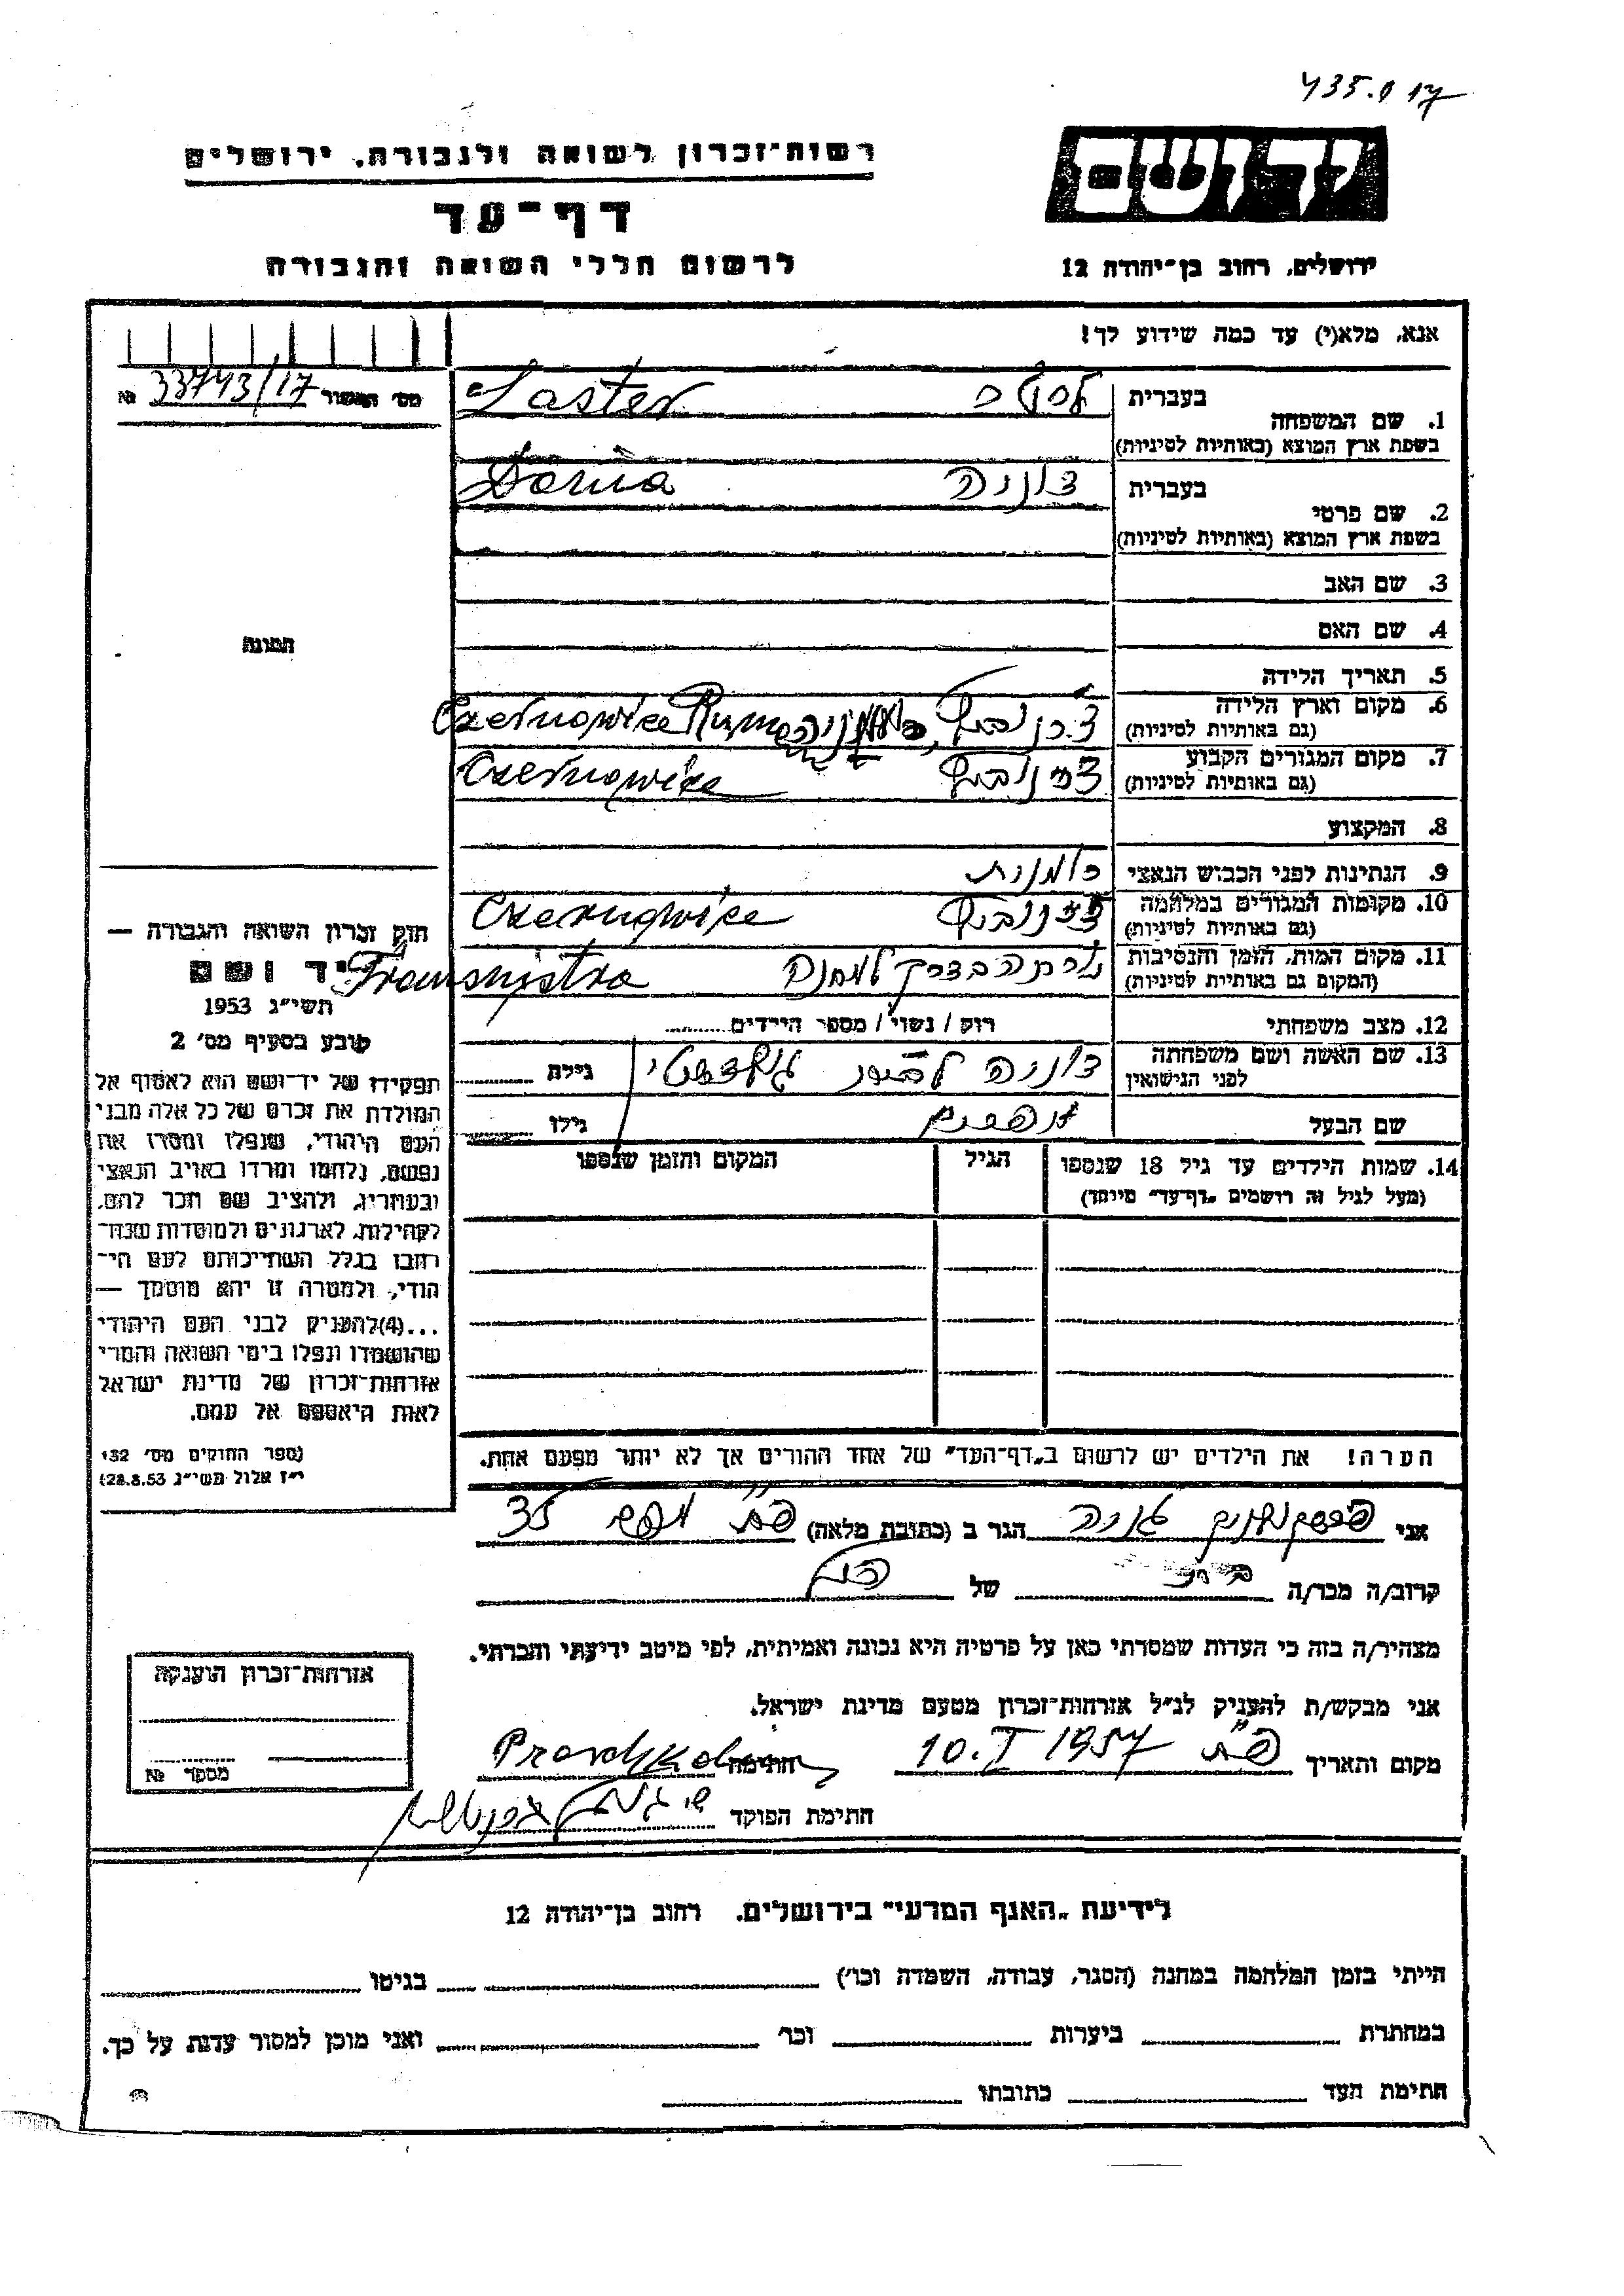 435.0 17
יד ושם
רשות־זכרון לשואה ולגבורה, ירושלים
דף־עד
לרשום חללי השואה והגבורה
ירושלים, רחוב בן־יהודה 12
אנא, מלא(י) עד כמה שידוע לך!
מס׳ האשור 33743/17 №
1. שם המשפחה
בעברית לסטר Laster
בשפת ארץ המוצא (באותיות לטיניות)
2. שם פרטי
בעברית דוניה Donia
בשפת ארץ המוצא (באותיות לטיניות)
3. שם האב
4. שם האם
5. תאריך הלידה
6. מקום וארץ הלידה Czernowice
(גם באותיות לטיניות)
7. מקום המגורים הקבוע Czernowice
(גם באותיות לטיניות)
8. המקצוע
9. הנתינות לפני הכבוש הנאצי רומנית
10. מקומות המגורים במלחמה Czernowice
(גם באותיות לטיניות)
11. מקום המות, הזמן והנסיבות בדרך למחנה Transnistra
(המקום גם באותיות לטיניות)
12. מצב משפחתי רוק / נשוי / מספר הילדים
13. שם האשה ושם משפחתה דוניה גילה
לפני הנישואין
שם הבעל אפרים גילו
14. שמות הילדים עד גיל 18 שנספו הגיל המקום והזמן שנספו
(מעל לגיל זה רושמים „דף־עד" מיוחד)
הערה! את הילדים יש לרשום ב„דף־העד" של אחד ההורים אך לא יותר מפעם אחת.
התמונה
חוק זכרון השואה והגבורה —
יד ושם
תשי״ג 1953
קובע בסעיף מס׳ 2
תפקידו של יד־ושם הוא לאסוף אל
המולדת את זכרם של כל אלה מבני
העם היהודי, שנפלו ומסרו את
נפשם, נלחמו ומרדו באויב הנאצי
ובעוזריו, ולהציב שם וזכר להם,
לקהילות, לארגונים ולמוסדות שנח־
רבו בגלל השתייכותם לעם הי־
הודי, ולמטרה זו יהא מוסמך —
...(4)להעניק לבני העם היהודי
שהושמדו ונפלו בימי השואה והמרי
אזרחות־זכרון של מדינת ישראל
לאות היאספם אל עמם.
(ספר החוקים מס׳ 132
י״ז אלול תשי״ג 28.8.53)
אני הגר ב (כתובת מלאה) 35
קרוב/ה מכר/ה של
מצהיר/ה בזה כי העדות שמסרתי כאן על פרטיה היא נכונה ואמיתית, לפי מיטב ידיעתי והכרתי.
אני מבקש/ת להעניק לנ״ל אזרחות־זכרון מטעם מדינת ישראל.
מקום והתאריך 10.I 1957 חתימה
חתימת הפוקד
אזרחות־זכרון הוענקה
מספר №
לידיעת „האגף המדעי" בירושלים, רחוב בן־יהודה 12
הייתי בזמן המלחמה במחנה (הסגר, עבודה, השמדה וכו׳) בגיטו
במחתרת ביערות וכו׳ ואני מוכן למסור עדות על כך.
חתימת העד כתובתו